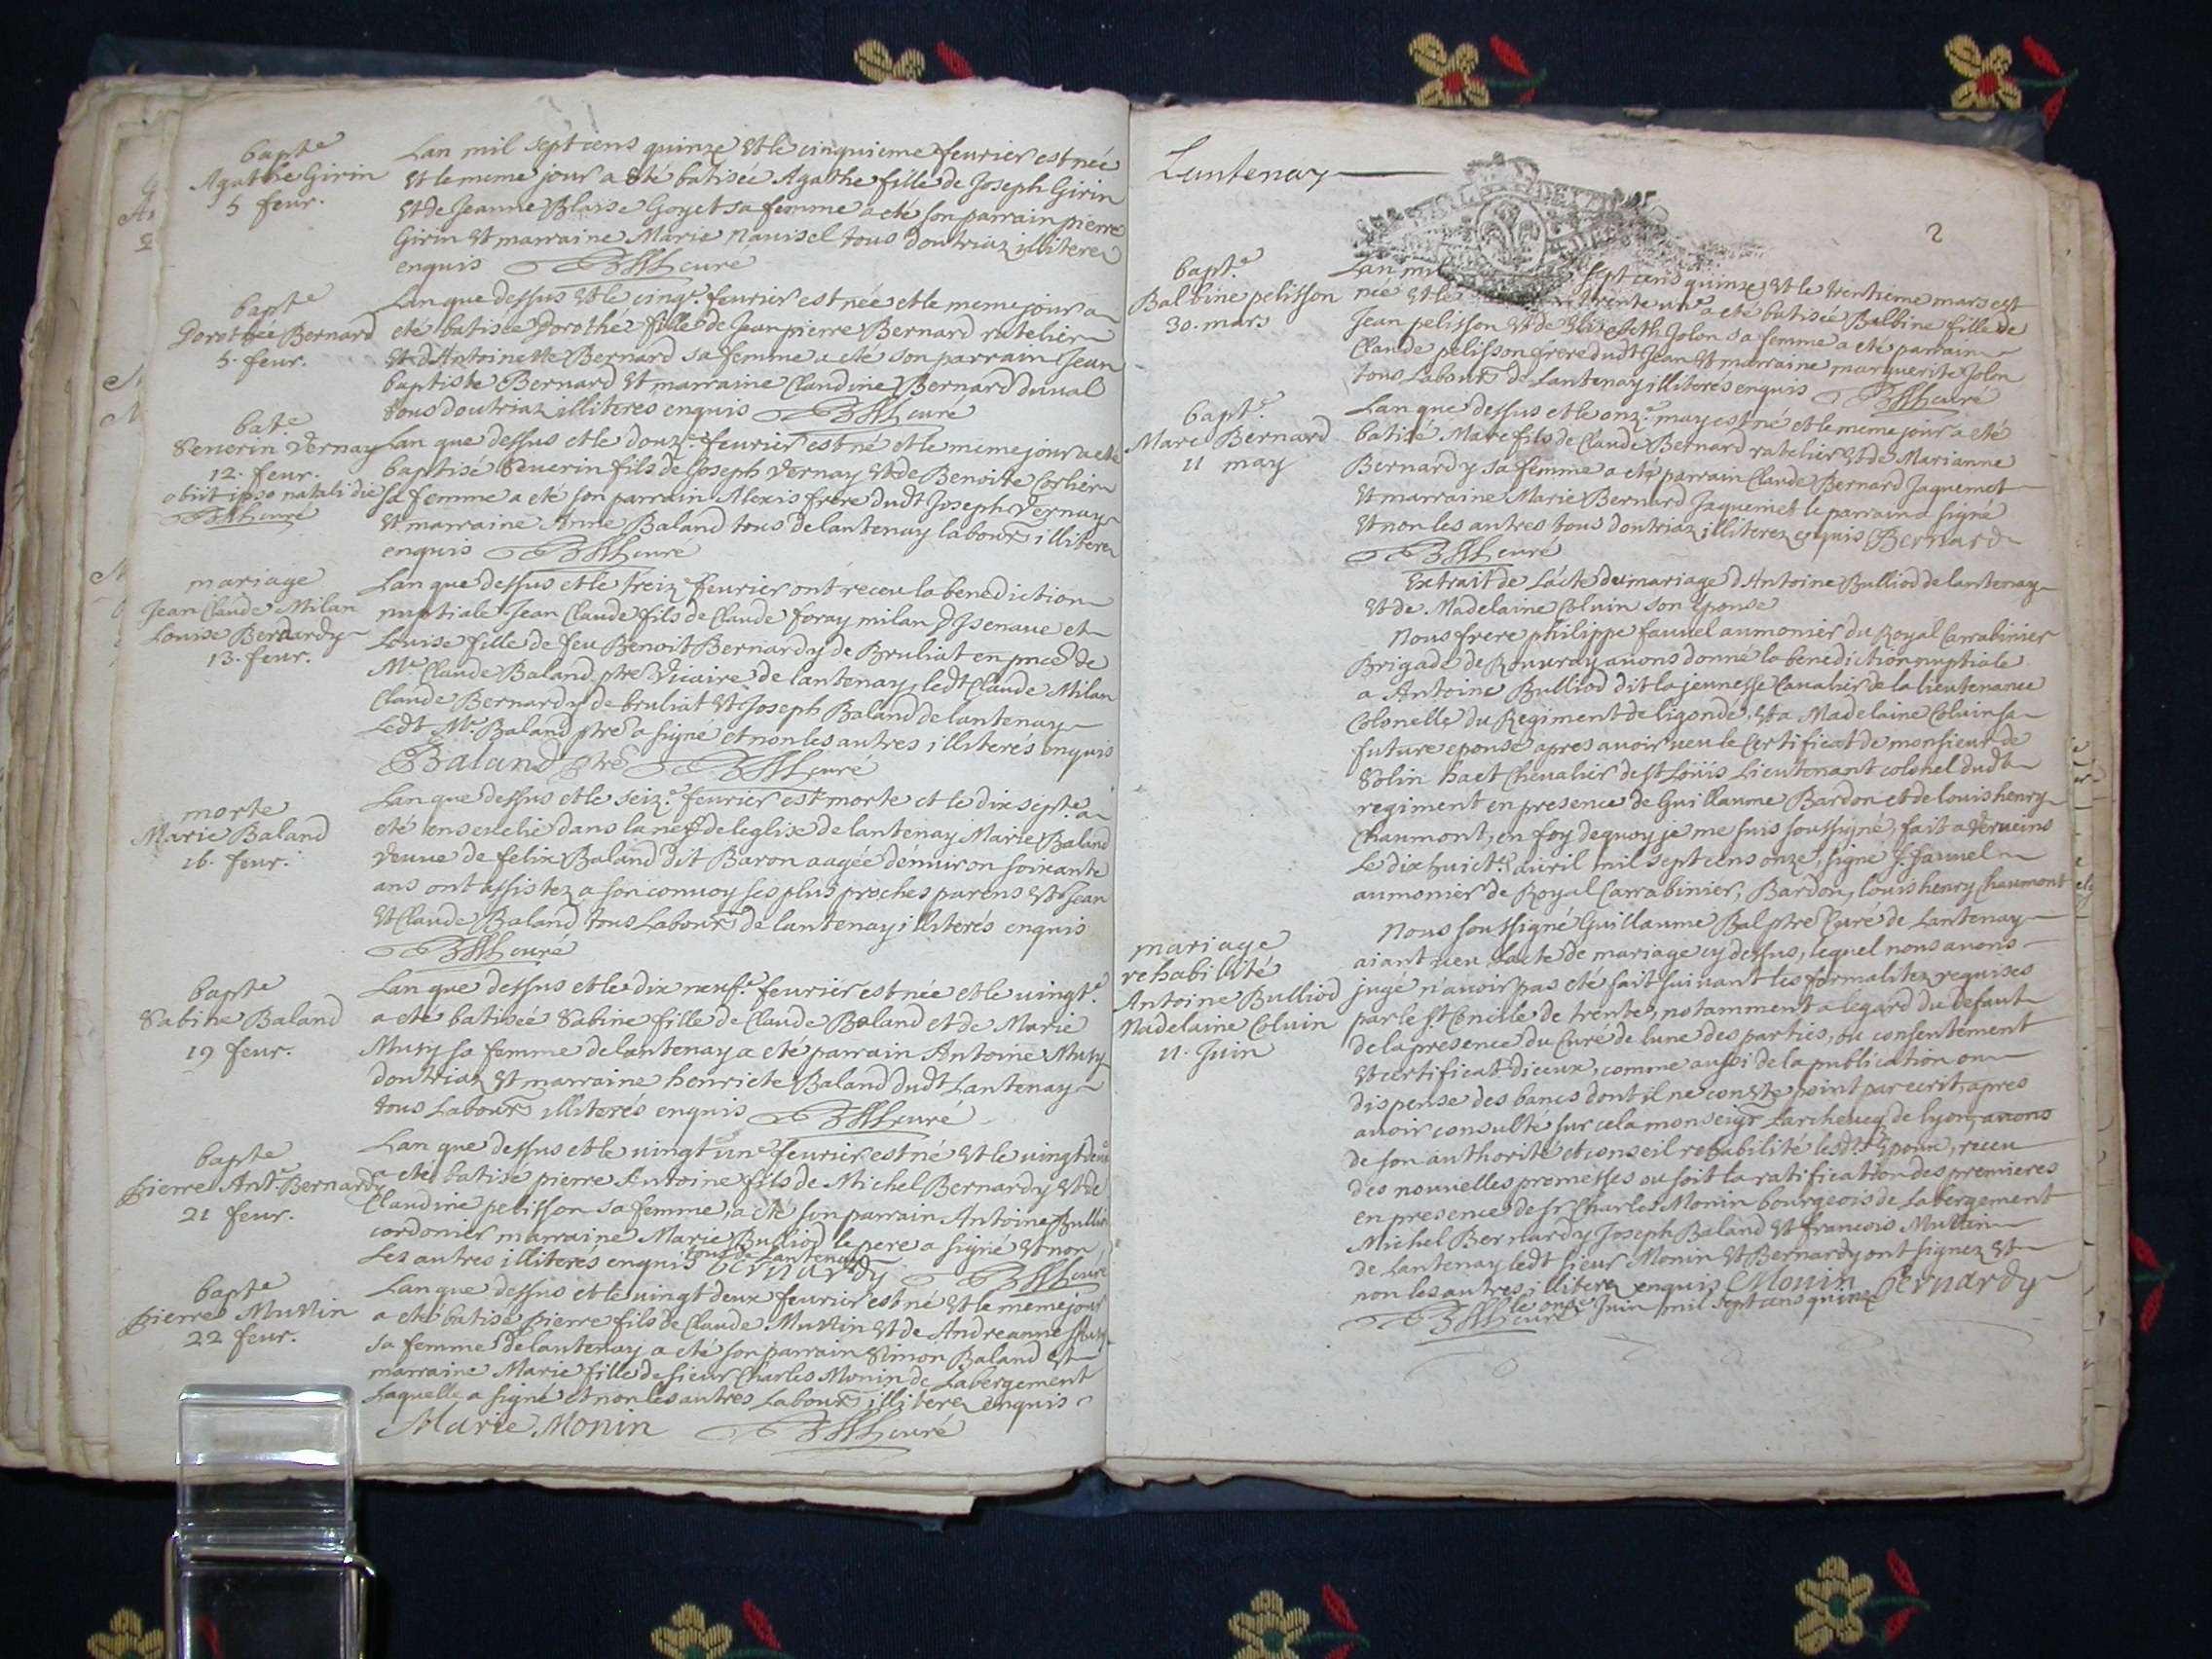 bapte
Agathe Girin
5 feur.
Lan mil sept cens quinze et le cinquieme feurier est née
et le meme jour a eté batiseé Agathe fille de Joseph Girin
et de Jeanne Blaise Goyet sa femme a eté son parrain pierre
Girin et marraine Marie Nauisel tous doutriaz illiterez
enquis curé
bapte
Dorothée Bernard
5. feur.
Lan que dessus et le cinqe. feurier est née et le meme jour a
eté batiseé Dorothé fille de Jean pierre Bernard ratelier
et dAntoinette Bernard sa femme a eté son parrain Jean
baptiste Bernard et marraine Claudine Bernard duual
tous doutriaz illiterés enquis curé
bate
Seuerin Vernay
12. feur.
obiit ipso natali die
curé
Lan que dessus et le douze. feurier est né et le meme jour a eté
baptisé Seuerin fils de Joseph Vernay et de Benoite Corlier
sa femme a eté son parrain Alexis frere dudt Joseph Vernay
et marraine Anne Baland tous de lantenay labours illiterez
enquis curé
mariage
Jean Claude Milan
Louise Bernardy
13. feur.
Lan que dessus et le treize feurier ont receu la benediction
nuptiale Jean Claude fils de Claude foray milan dJsenaue et
Louise fille de feu Benoit Bernardy de Bruliat en pnce de
Mre Claude Baland ptre Vicaire de lantenay, ledt Claude Milan
Claude Bernardy de bruliat et Joseph Baland de lantenay
Ledt Mre Baland ptre a signé et non les autres illiterés enquis
Baland ptre curé
morte
Marie Baland
16. feur.
Lan que dessus et le seize. feurier est morte et le dix septe. a
eté enseuelie dans la nef de leglise de lantenay Marie Baland
Veuue de felix Baland dit Baron aageé denuiron soixante
ans ont assistez a son conuoy ses plus proches parens et Jean
et Claude Baland tous Labours de lantenay illiterés enquis
curé
bapte
Sabine Baland
19 feur.
Lan que dessus et le dix neufe. feurier est née et le uingte.
a eté batiseé Sabine fille de Claude Baland et de Marie
Muty sa femme de lantenay a eté parrain Antoine Muty
doutriaz et marraine henriete Baland dudt Lantenay
tous Labours illiterés enquis curé
bapte
pierre Ant. Bernardy
21 feur.
Lan que dessus et le uingt une feurier est né et le uingt deux
a eté batisé pierre Antoine fils de Michel Bernardy et de
Claudine pelisson sa femme, a eté son parrain Antoine Bulliod
cordonier marraine Marie Bulliod le pere a signé et non
Les autres illiterés enquis tous de Lantenay bernardy curé
bapte
pierre Muttin
22 feur.
Lan que dessus et le uingt deux feurier est né et le meme jour
a eté batisé pierre fils de Claude Muttin et de Andreanne Muty
sa femme de lantenay a eté son parrain Simon Baland et
marraine Marie fille de sieur Charles Monin de Labergement
Laquelle a signé et non les autres Labours illiterez enquis
Marie Monin curé
Lantenay
2
bapt.e
Balbine pelisson
30. mars
Lan mil sept cens quinze et le trentieme mars est
née et le trente une a eté batiseé Balbine fille de
Jean pelisson et de Elizabeth Jolon sa femme a eté parrain
Claude pelisson frere dudt Jean et marraine marguerite Jolon
tous Labours de Lantenay illiterés enquis curé
bapt.e
Marc Bernard
11 may
Lan que dessus et le onze. may est né et le meme jour a eté
batisé Marc fils de Claude Bernard ratelier et de Marianne
Bernardy sa femme a eté parrain Claude Bernard Jaquemet
et marraine Marie Bernard Jaquemet le parrain a signé
et non les autres tous doutriaz illiterez enquis Bernard
curé
Extrait de Lacte de mariage dAntoine Bulliod de lantenay
et de Madelaine Coluin son Epouse
Nous frere philippe fauuel aumonier du Royal Carrabinier
Brigade de Rouuray auons donné la benediction nuptiale
a Antoine Bulliod dit la jeunesse Caualier de la lieutenance
Colonelle du Regiment de ligonde, et a Madelaine Coluin sa
future epouse apres auoir ueu le Certificat de monsieur de
Solin haet Cheualier de st Loüis Lieutenant colonel dudt
regiment en presence de Guillaume Bardon et de louis henry
Chaumont, en foy dequoy je me suis soussigné, fait a Veruins
Le dix huicte. auril mil sept cens onze, signé f. fauuel
aumonier de Royal Carrabinier, Bardon, louis henry Chaumont
mariage
rehabilité
Antoine Bulliod
Madelaine Coluin
11. Juin
Nous soussigné Guillaume Bal ptre Curé de Lantenay
aiant ueu lacte de mariage cy dessus, lequel nous auons
jugé n'auoir pas eté fait suiuant les formalitez requises
par le st. Concile de trente, notamment a legard du defaut
de la presence du Curé de lune des parties, ou consentement
et certificat diceux, comme aussi de la publication ou
dispense des bancs dont il ne conste point par ecrit, apres
auoir consulté sur cela monseigr. Larcheueq de lyon, auons
de son authorité et conseil rehabilité lesdts. Epoux, receu
des nouuelles promesses ou soit la ratification des premieres
en presence de sr. Charles Monin bourgeois de Labergement
Michel Bernardy Joseph Baland et francois Muttin
de Lantenay ledt sieur Monin et Bernardy ont signez et
non les autres illiterez enquis Monin bernardy
curé le onze Juin mil sept cens quinze